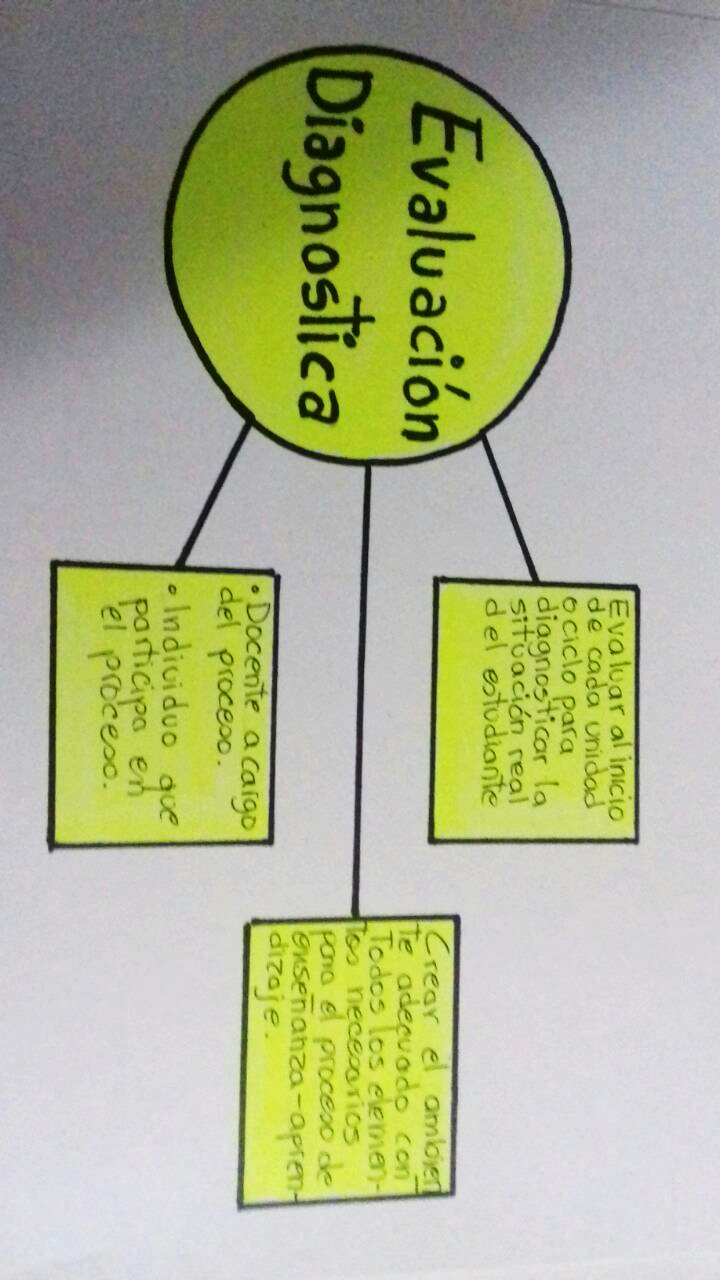 Evaluación
Diagnostica
Evaluar al inicio
de cada unidad
o ciclo para
diagnosticar la
situación real
del estudiante
Crear el ambien
te adecuado con
Todos los elemen-
tos necesarios
para el proceso de
enseñanza-apren-
dizaje.
• Docente a cargo
del proceso.
• Individuo que
participa en
el proceso.